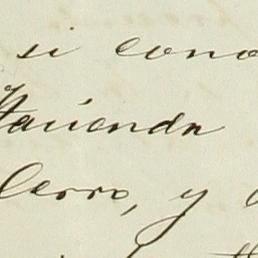 si cono
Hacienda
Cerro, y